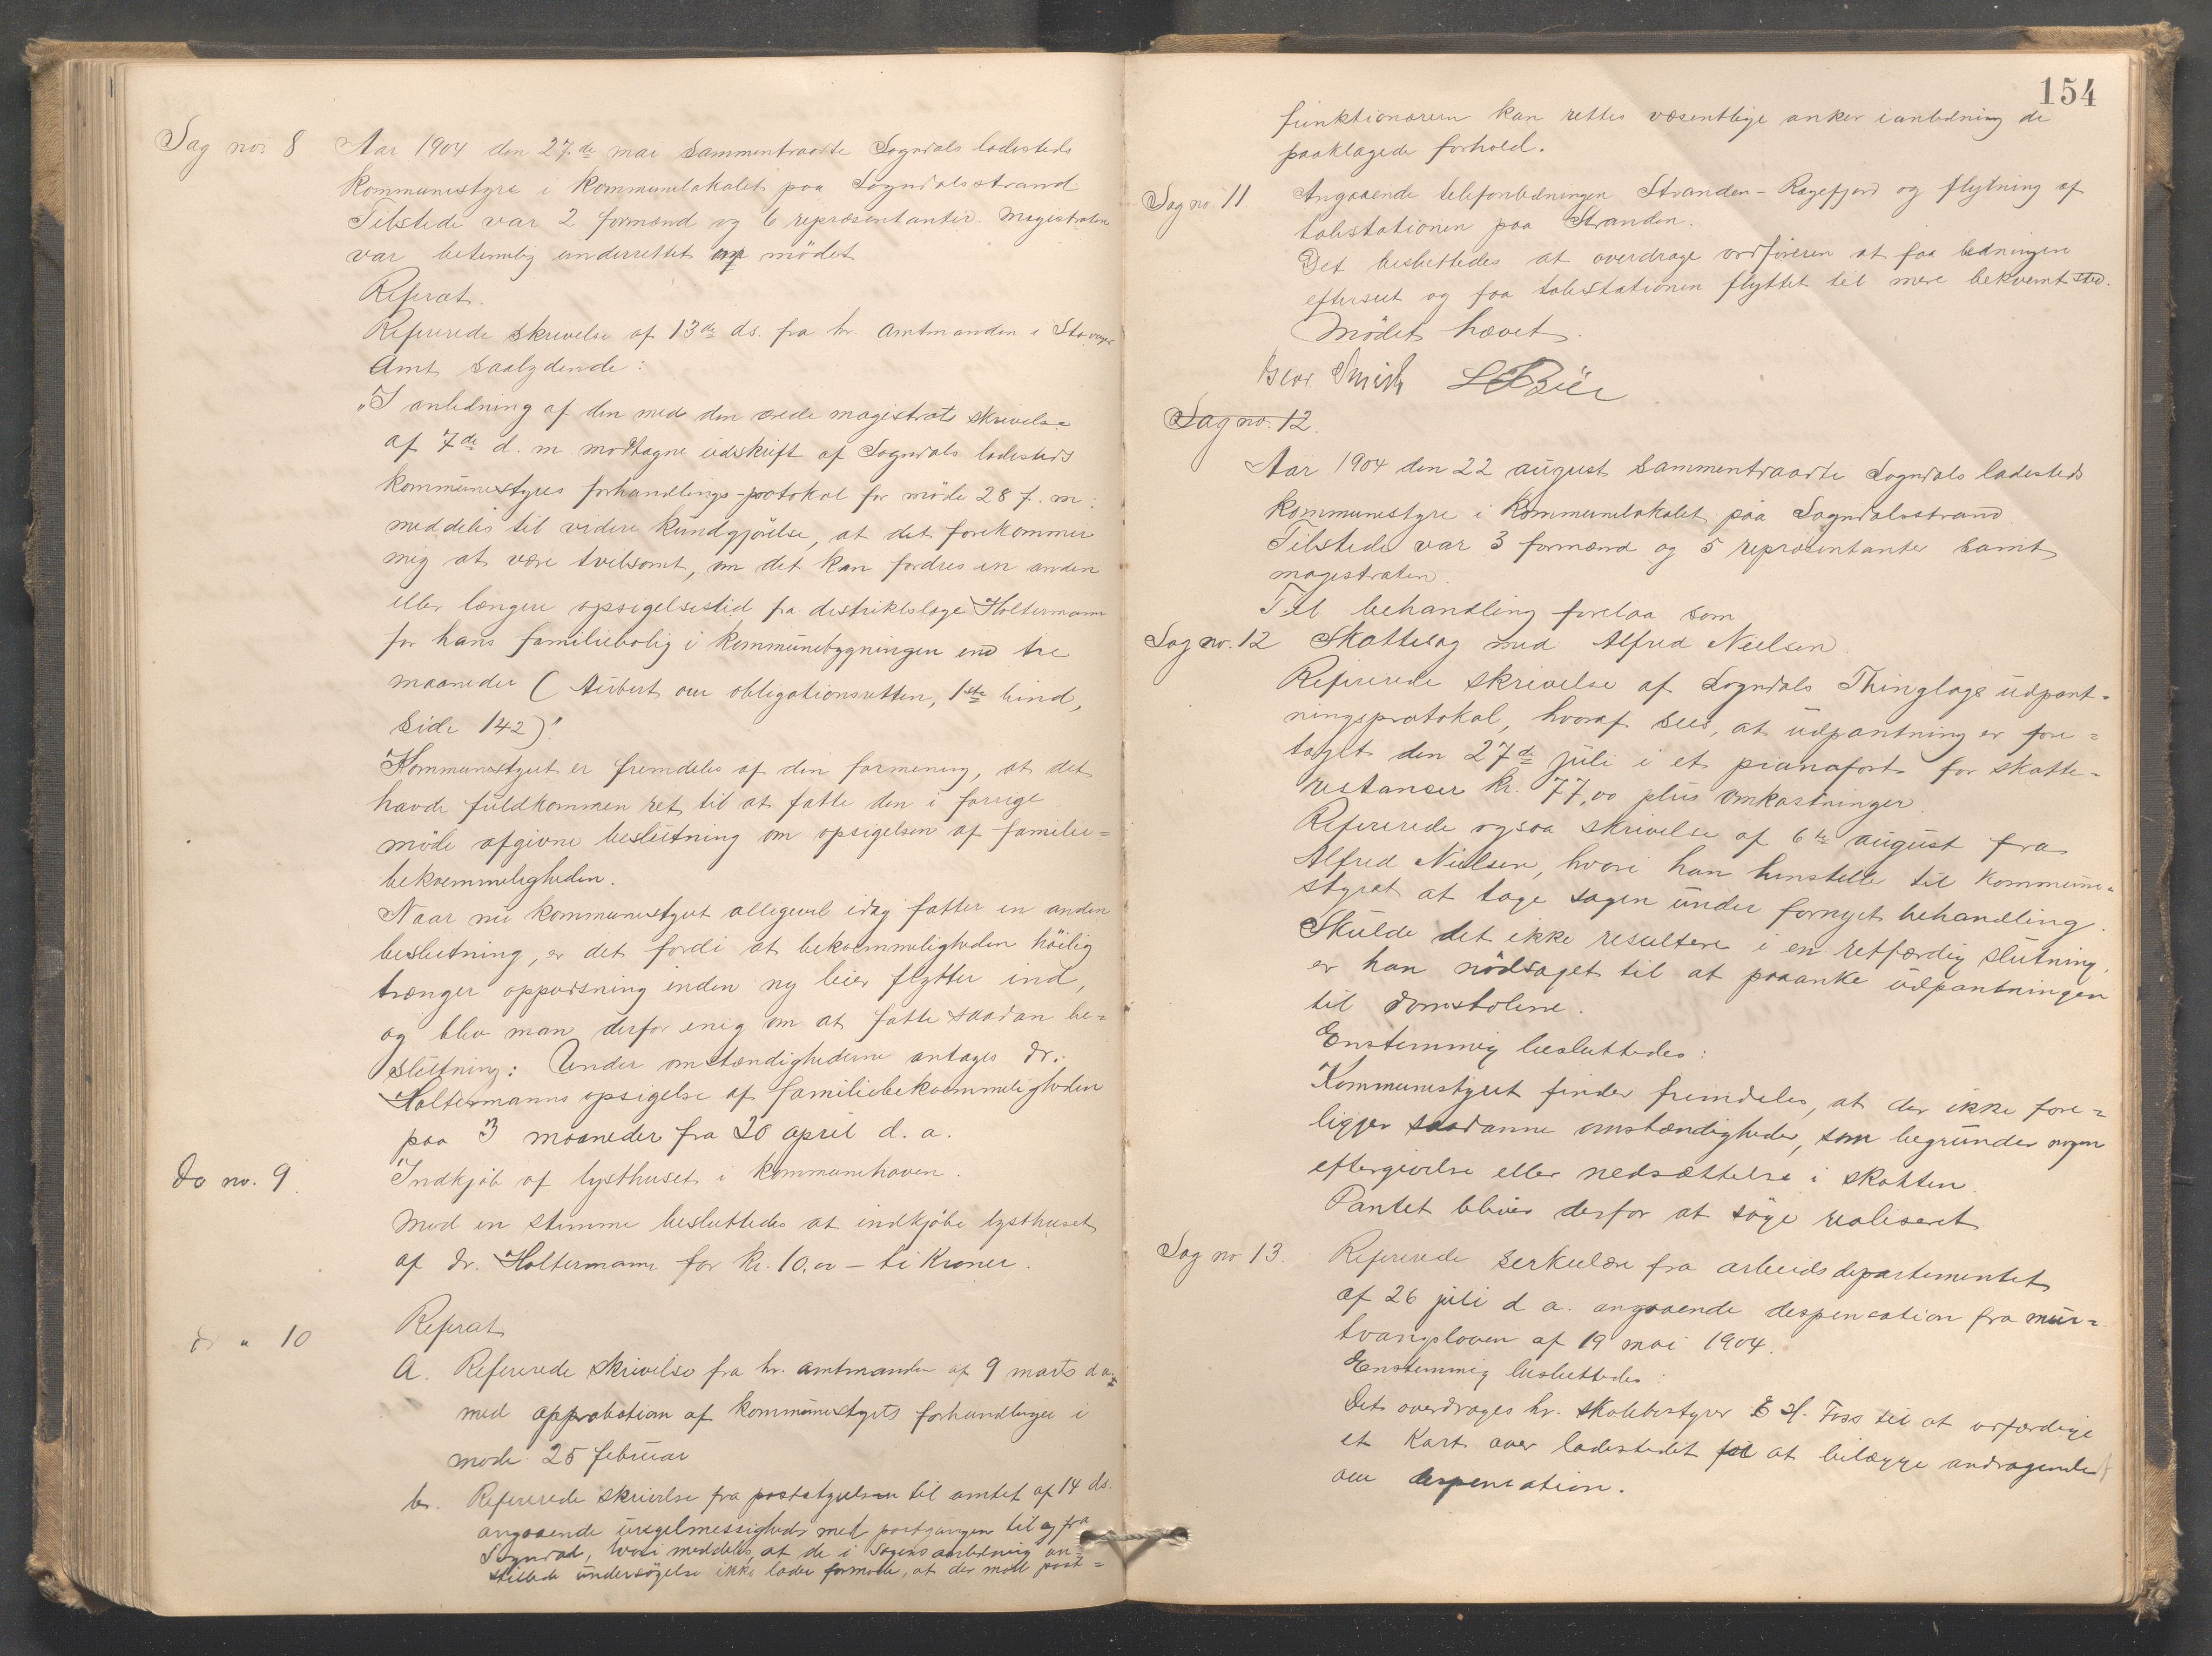 Sag no: 8 Aar 1904 den 27de mai sammentraadte Sogndals ladesteds
kommunestyre i kommunelokalet paa Sogndalsstrand
Tilstede var 2 formænd og 6 repræsentanter. Magistraten
var betimelig underrettet om mödet
Referat.
Refererede skrivelse af 13de ds. fra hr. amtmanden i Stavanger
Amt saalydende:
"I anledning af den med den ærede magistrats skrivelse
af 7de d. m. modtagne udskrift af Sogndals ladesteds
kommunestyres forhandlings-protokol for möde 28 f. m:
meddeles til videre kundgjörelse, at det forekommer
mig at være tvilsomt, om det kan fordres en anden
eller længere opsigelsestid fra distriktslæge Holtermann
for hans familiebolig i kommunebygningen end tre
maaneder (Aubert om obligationsretten, 1ste bind,
side 142)"
Kommunestyret er fremdeles af den formening, at det
havde fuldkommen ret til at fatte den i forrige
möde afgivne beslutning om opsigelsen af familie=
bekvemmeligheden.
Naar nu kommunestyret alligevel idag fatter en anden
beslutning, er det fordi at bekvemmeligheden höilig
trænger oppudsning inden ny leier flytter ind,
og blev man derfor enig om at fatte saadan be=
slutning: Under omstændighederne antages dr.
Holtermanns opsigelse af familiebekvemmeligheden
paa 3 maaneder fra 20 april d. a.
Do no. 9. Indkjöb af lysthuset i kommunehaven.
Mod en stemme besluttedes at indkjöbe lysthuset
af dr. Holtermann for kr. 10.00 – ti kroner.
do " 10 Referat
A. Refererede skrivelse fra hr. amtmanden af 9 marts d a.
med approbation af kommunestyrets forhandlinger i
möde 25 februar
b. Refererede skrivelse fra poststyrelsen til amtet af 14 ds.
angaaende uregelmessigheder med postgangen til og fra
Sogndal, hvori meddeles, at de i sagens anledning an=
stillede undersögelse ikke lader formode, at der mod post=
154
funktionærern kan rettes væsentlige anker i anledning de
paaklagede forhold.
Sag no. 11 Angaaende telefonledningen Stranden – Rægefjord og flytning af
talestationen paa Stranden.
Det besluttedes at overdrage ordföreren at faa ledningen
efterseet og faa talestationen flyttet til mere bekvemt sted.
Mödet hævet.
Smith
Sag no. 12.
Aar 1904 den 22 august sammentraadte Sogndals ladesteds
kommunestyre i kommunelokalet paa Sogndalsstrand
Tilstede var 3 formænd og 5 repræsentanter samt
magistraten.
Til behandling forelaa som
Sag no. 12 Skattesag med Alfred Nielsen.
Refererede skrivelse af Sogndals Thinglags udpant=
ningsprotokol, hvoraf sees, at udpantning er fore=
taget den 27de juli i et pianoforte for skatte=
restancer kr. 77,00 plus omkostninger.
Refererede ogsaa skrivelse af 6te august fra
Alfred Nielsen, hvori han henstiller til kommune=
styret at tage sagen under fornyet behandling.
Skulde det ikke resultere i en retfærdig slutning,
er han nödsaget til at paaanke udpantningen
til domstolene.
Enstemmig besluttedes:
Kommunestyret finder fremdeles, at der ikke fore=
ligger saadanne omstændigheder, som begrunder nogen
eftergivelse eller nedsættelse i skatten.
Pantet bliver derfor at söge realiseret
Sag no 13. Refererede serkulære fra arbeidsdepartementet
af 26 juli d a. angaaende despencation fra mur=
tvangsloven af 19 mai 1904.
Enstemmig besluttedes:
Det overdrages hr. skolebestyrer E H. Foss til at udfærdige
et kart over ladestedet til at bilægge andragendet
om despencation.